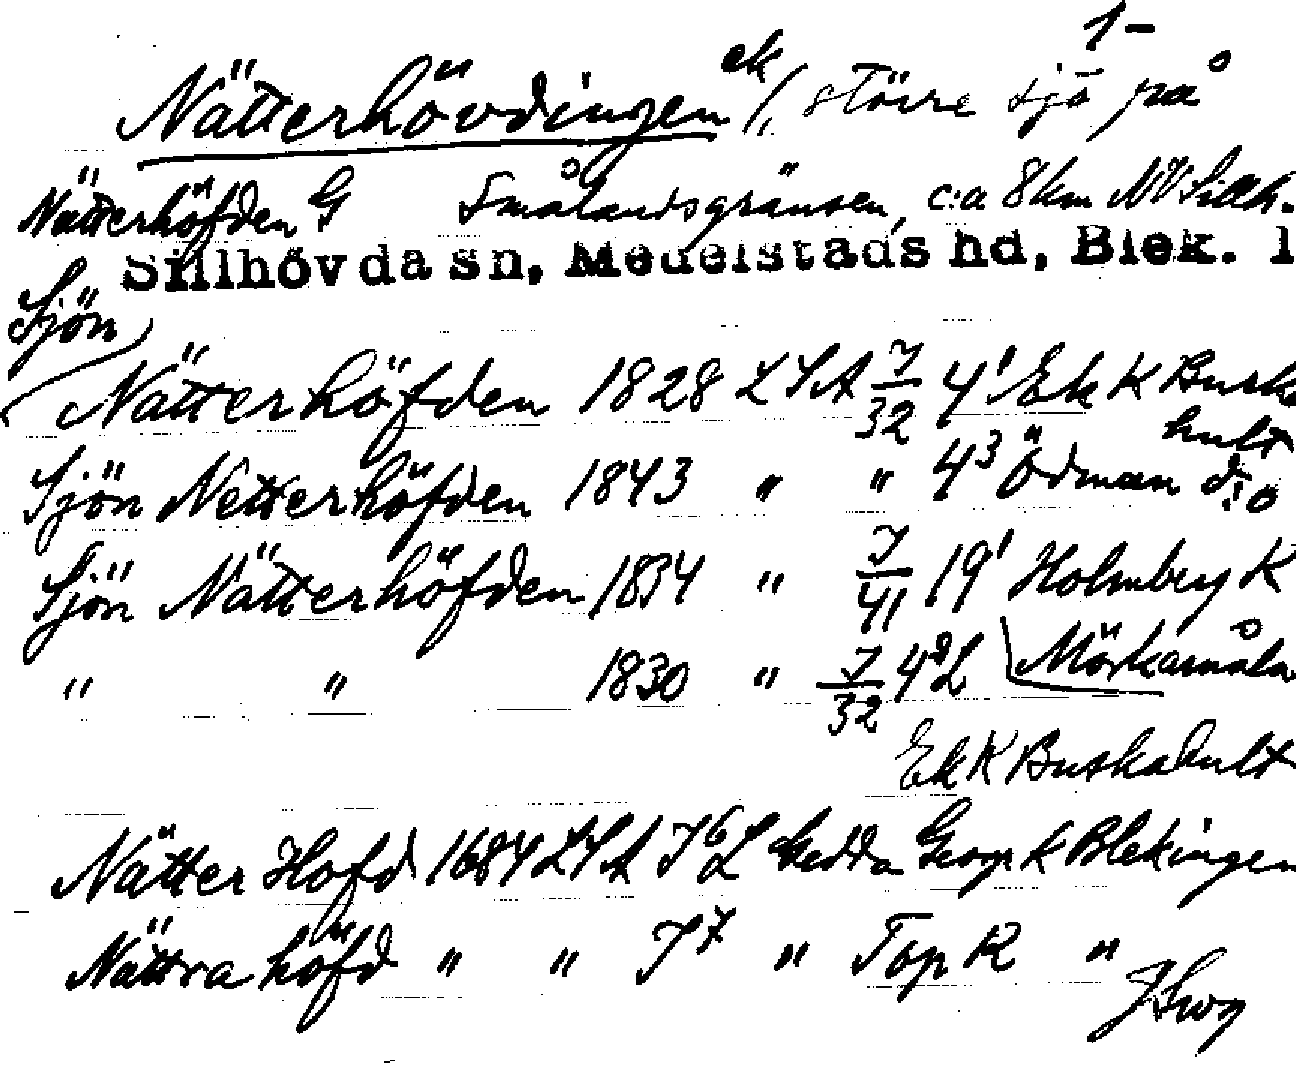 1-
Nätterhövdingen ek /, större sjö på
Nätterhöfden G Smålandsgränsen, c:a 8 km NV Sillh.
Sillhövda sn, Medelstads hd, Blek. l
Sjön
Nätterhöfden 1828 LSA 7/32 4¹ Ek K Buska
hult
Sjön Netterhöfden 1843 " " 4³ Ödman d:o
Sjön Nätterhöfden 1834 " 7/41 19¹ Holmberg K
" " 1830 " 7/32 4² L Mörkamåla
Ek K Buskahult
Nätter Hofd 1684 LSA J⁶ L Gedda Geogr K Blekingen
Nättra höfd " " J⁷ " Top K "